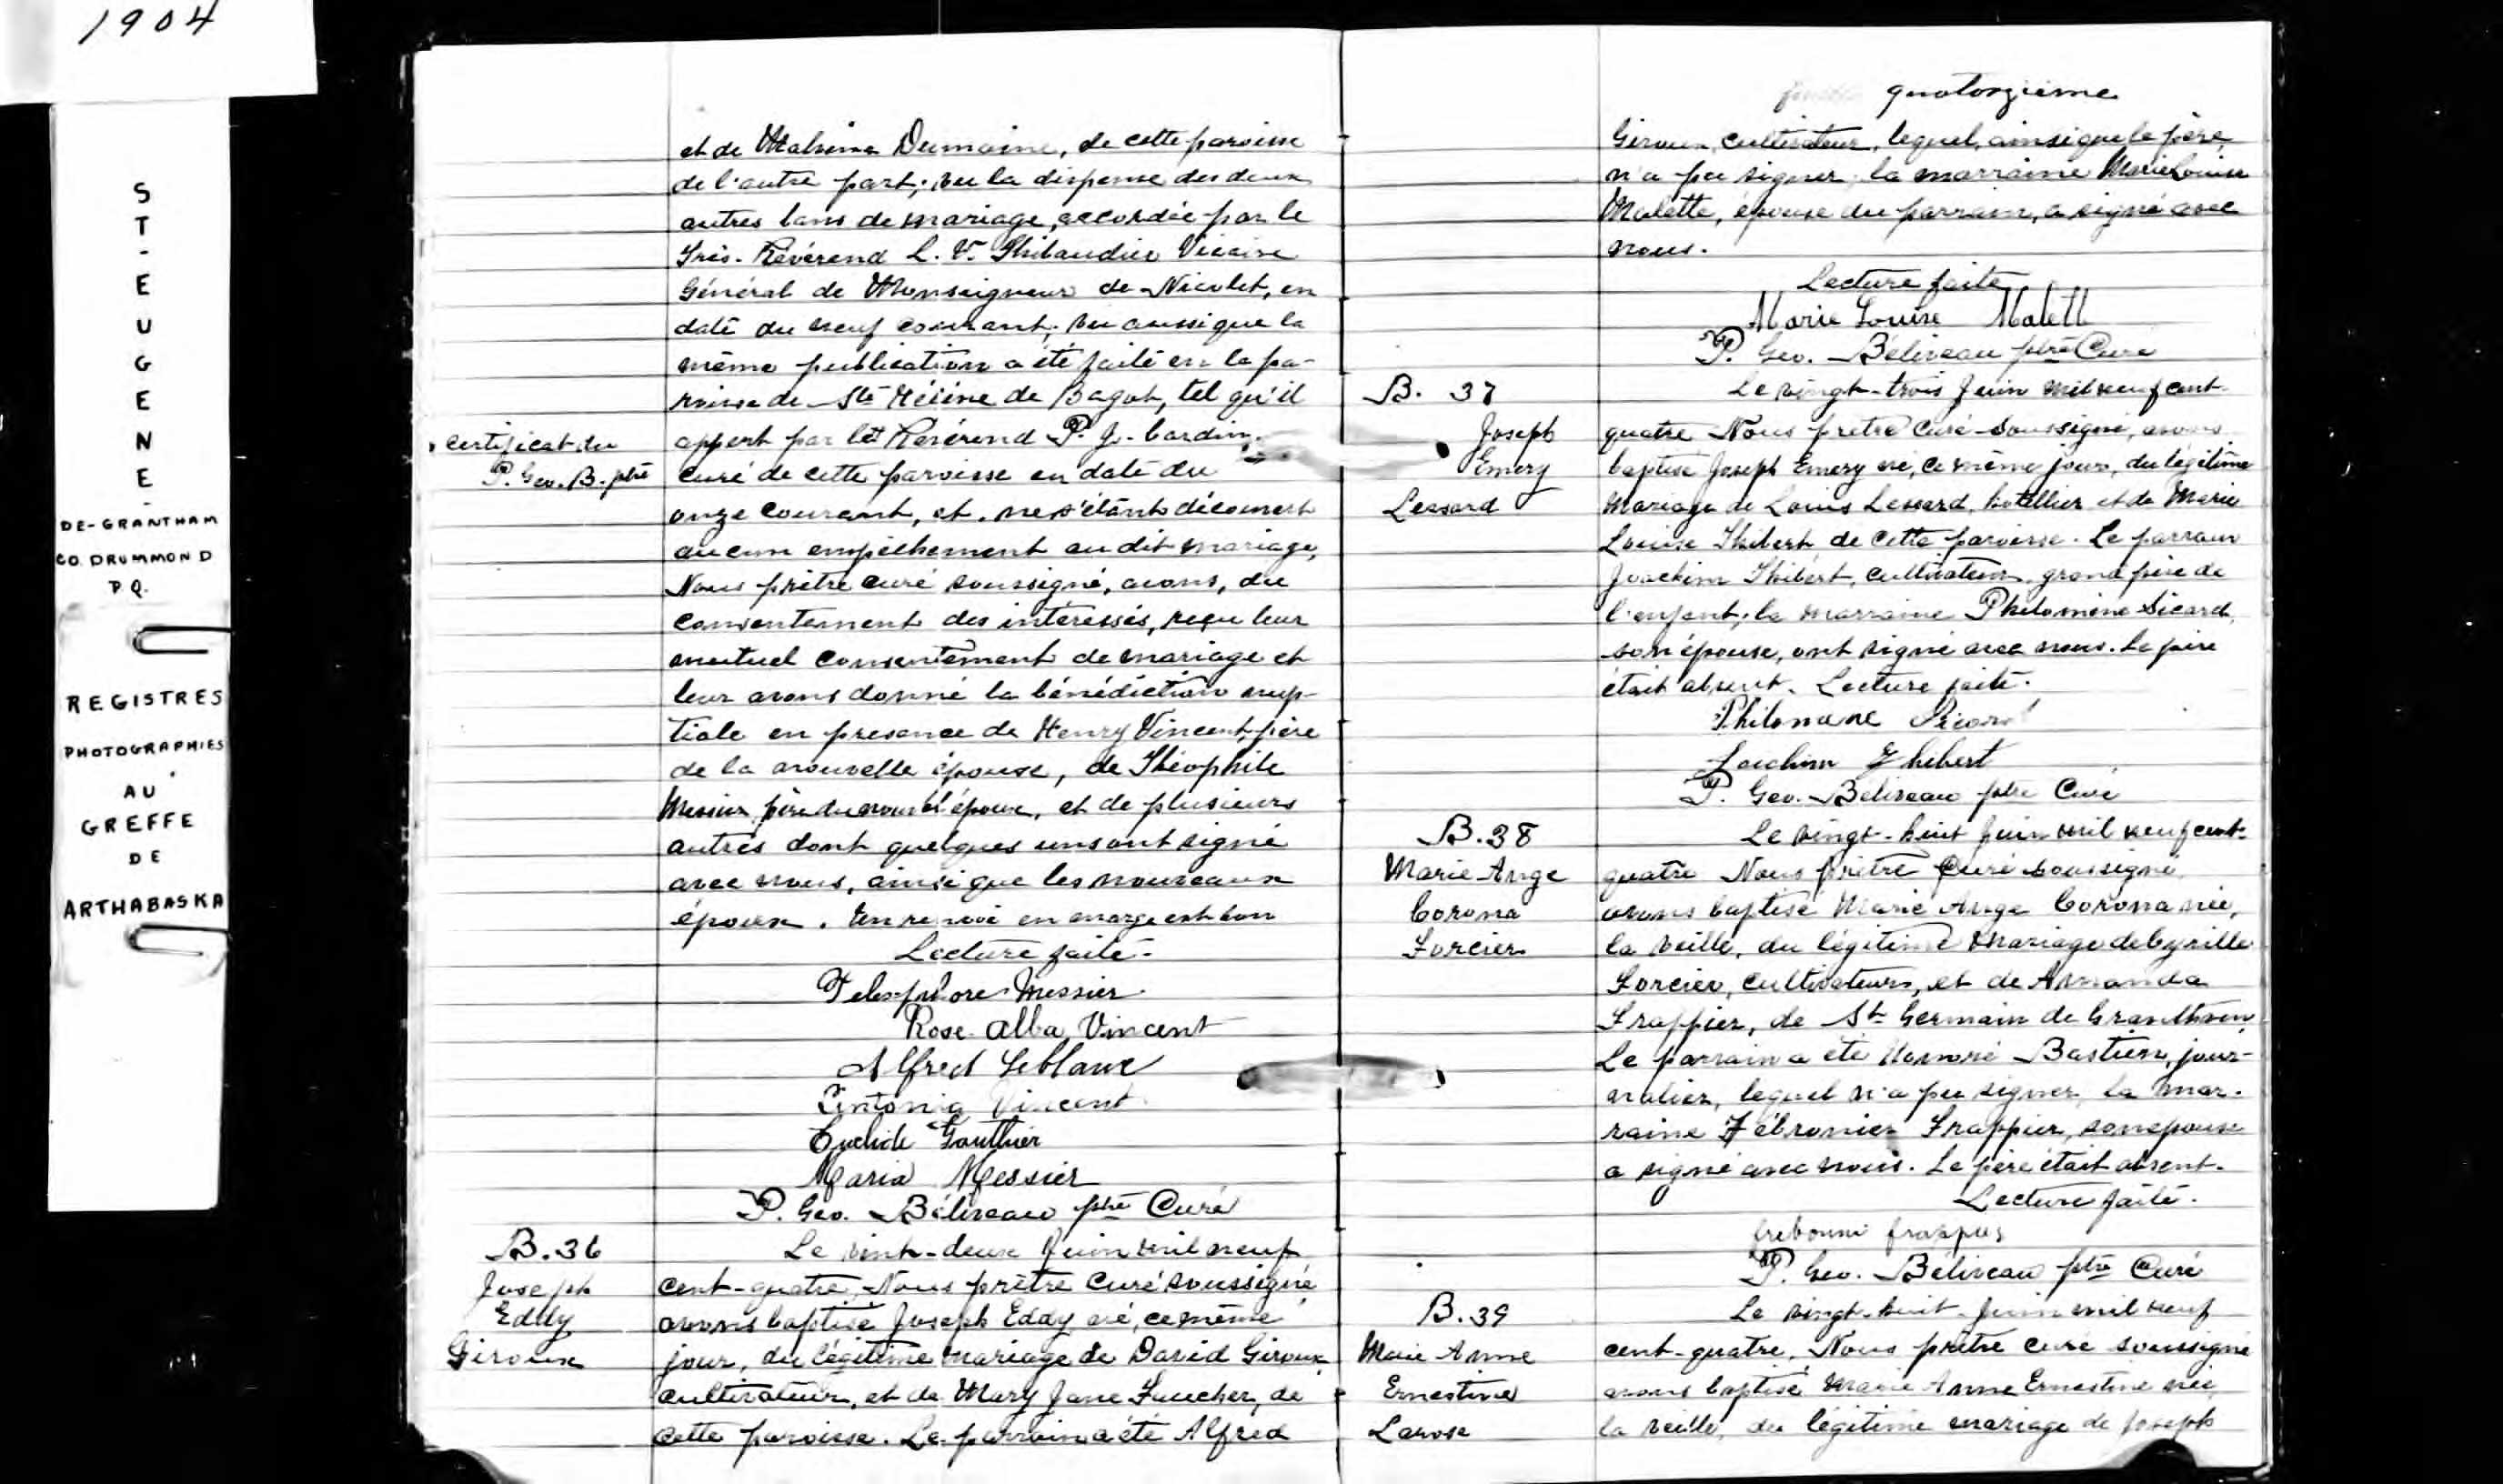 1904
ST-EUGENE-
DE-GRANTHAM
CO. DRUMMOND
P.Q.
REGISTRES
PHOTOGRAPHIES
AU
GREFFE
DE
ARTHABASKA
et de Malvina Dumaine, de cette paroisse
de l'autre part; vu la dispense des deux
autres bans de mariage, accordée par le
Très-Révérend L. V. Thibaudier Vicaire
Général de Monseigneur de Nicolet, en
date du neuf courant; vu aussi que la
même publication a été faite en la pa-
roisse de Ste Hélène de Bagot, tel qu'il
certificat du
P. Geo. B. ptre
appert par le Révérend P. J. Cardin
curé de cette paroisse en date du
onze courant, et ne s'étant découvert
aucun empêchement au dit mariage,
Nous prêtre curé soussigné, avons, du
consentement des intéressés, reçu leur
mutuel consentement de mariage et
leur avons donné la bénédiction nup-
tiale en presence de Henry Vincent, père
de la nouvelle épouse, de Théophile
Messier, père du nouvel époux, et de plusieurs
autres dont quelques uns ont signé
avec nous, ainsi que les nouveaux
époux. Un renvoi en marge est bon
Lecture faite.
Telesphore Messier
Rose-Alba Vincent
Alfred Leblanc
Vincent
Euclide Gauthier
Maria Messier
P. Geo. Béliveau ptre Curé
B. 36
Joseph
Eddy
Giroux
Le vint-deux Juin mil neuf
cent-quatre, Nous prêtre Curé soussigné
avons baptisé Joseph Eddy né, ce même
jour, du légitime mariage de David Giroux
cultivateur, et de Mary Jane Faucher, de
cette paroisse. Le parrain a été Alfred
quatorzieme
Giroux, cultivateur, lequel, ainsi que le père,
n'a pu signer; la marraine Marie Louise
Malette, épouse du parrain, a signé avec
nous.
Lecture faite
Marie Louise Malett
P. Geo. Béliveau ptre Curé
B. 37
Joseph
Emery
Lessard
Le vingt-trois Juin mil neuf cent-
quatre Nous prêtre Curé Soussigné, avons
baptisé Joseph Emery né, ce même jour, du légitime
Mariage de Louis Lessard, hotellier et de Marie
Louise Thibert de cette paroisse. Le parrain
Joachim Thibert, cultivateur, grand père de
l'enfant; la marraine Philomène Sicard,
son épouse, ont signé avec nous. Le père
était absent. Lecture faite.
Philomene Sicard
Joachim Thibert
P. Geo. Béliveau ptre Curé
B. 38
Marie-Ange
Corona
Forcier
Le vingt-huit Juin mil neuf cent-
quatre Nous prêtre Curé soussigné,
avons baptisé Marie Ange Corona née,
la veille, du légitime Mariage de Cyrille
Forcier, cultivateur, et de Amanda
Frappier, de St Germain de Grantham
Le parrain a été Honoré Bastien, jour-
nalier, lequel n'a pu signer, la mar-
raine Fébronier Frappier, son epouse
a signé avec nous. Le père était absent.
Lecture faite.
P. Geo. Béliveau ptre Curé
B. 39
Marie Anne
Ernestine
Larose
Le vingt-huit Juin mil neuf
cent-quatre, Nous prêtre curé soussigné
avons baptisé Marie Anne Ernestine née
la veille, du légitime mariage de Joseph